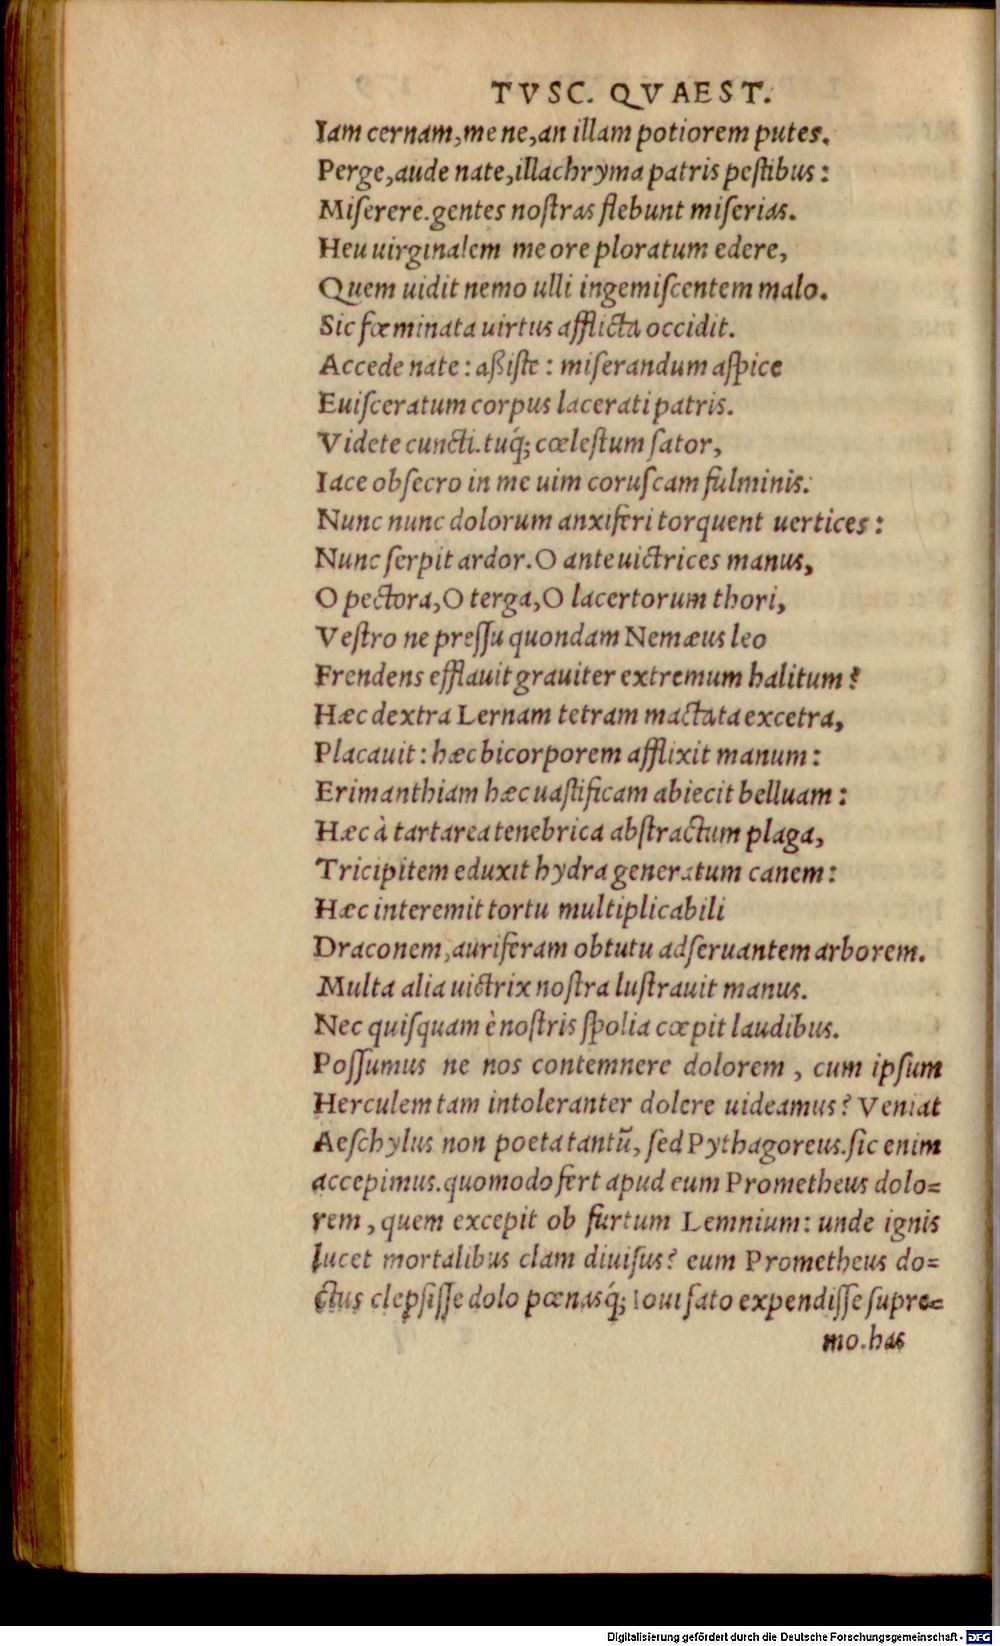 TVSC. QVAEST.
Iam cernam, me ne, an illam potiorem putes.
Perge, aude nate, illachryma patris pestibus:
Miserere. gentes nostras flebunt miserias.
Heu uirginalem me ore ploratum edere,
Quem uidit nemo ulli ingemiscentem malo.
Sic fœminata uirtus afflicta occidit.
Accede nate: aßiste: miserandum aspice
Euisceratum corpus lacerati patris.
Videte cuncti. tuq́; cœlestum sator,
Iace obsecro in me uim coruscam fulminis.
Nunc nunc dolorum anxiferi torquent uertices:
Nunc serpit ardor. O ante uictrices manus,
O pectora, O terga, O lacertorum thori,
Vestro ne pressu quondam Nemæus leo
Frendens efflauit grauiter extremum halitum?
Hæc dextra Lernam tetram mactata excetra,
Placauit: hæc bicorporem afflixit manum:
Erimanthiam hæc uastificam abiecit belluam:
Hæc à tartarea tenebrica abstractum plaga,
Tricipitem eduxit hydra generatum canem:
Hæc interemit tortu multiplicabili
Draconem, auriferam obtutu adseruantem arborem.
Multa alia uictrix nostra lustrauit manus.
Nec quisquam è nostris spolia cœpit laudibus.
Possumus ne nos contemnere dolorem, cum ipsum
Herculem tam intoleranter dolere uideamus? Veniat
Aeschylus non poeta tantũ, sed Pythagoreus. sic enim
accepimus. quomodo fert apud eum Prometheus dolo=
rem, quem excepit ob furtum Lemnium: unde ignis
lucet mortalibus clam diuisus? eum Prometheus do=
ctus clepsisse dolo pœnasq́; Ioui fato expendisse supre=
mo. has
Digitalisierung gefördert durch die Deutsche Forschungsgemeinschaft - DFG